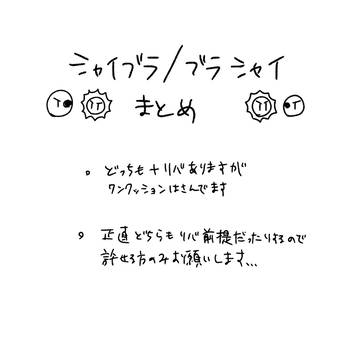 シャイブラ/ブラシャイ
まとめ
。どっちも+リバありますが
ワンクッションはさんでます
。正直どちらもリバ前提だったりするので
許せる方のみお願いします...